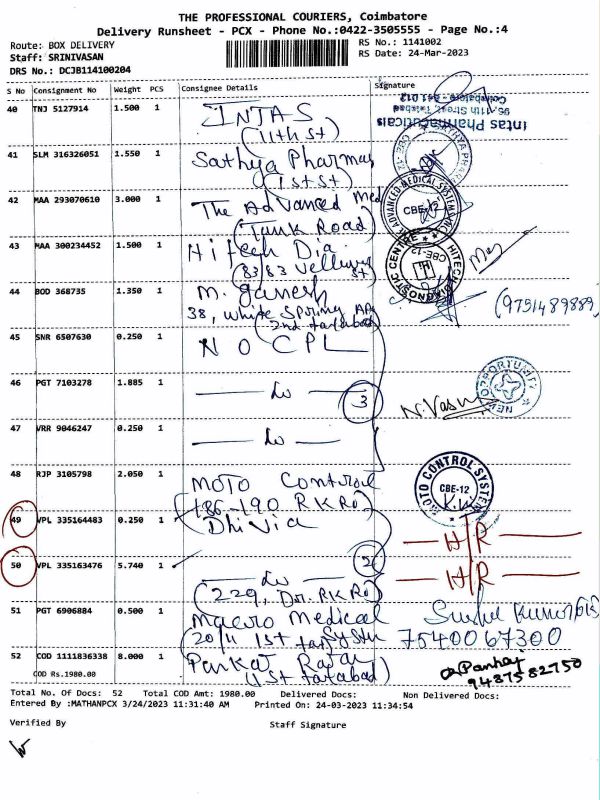 THE PROFESSIONAL COURIERS, Coimbatore
Delivery Runsheet - PCX - Phone No.:0422-3505555 - Page No.:4
Route: BOX DELIVERY
RS No.: 1141002
Staff: SRINIVASAN
RS Date: 24-Mar-2023
DRS No.: DCJB114100204
S No Consignment No Weight PCS Consignee Details Signature
40 TNJ 5127914 1.500 1 INTAS
(11th St)
Intas Pharmaceuticals
96, 11th Street, Tatabad
Coimbatore - 641 012
41 SLM 316326051 1.550 1 Sathya Pharmacy
(1st St)
42 MAA 293070610 3.000 1 The Advanced Med
(Tank Road)
CBE-12
43 MAA 300234452 1.500 1 Hitech Dia
(8383 Velluvar St
HITECH DIAGNOSTIC CENTRE
CBE-12
44 BOD 368735 1.350 1 M. ganesh
38, White Spring AP
(2nd tatabad)
(9751489889)
45 SNR 6507630 0.250 1 NO CPL
46 PGT 7103278 1.885 1 3
N. Vasu
NEW OPPORTUNITY
47 VRR 9046247 0.250 1
48 RJP 3105798 2.050 1 MOTO Control
(186-190 RK Rd)
MOTO CONTROL SYSTEMS
CBE-12
49 VPL 335164483 0.250 1 Dhivia H/R
50 VPL 335163476 5.740 1 2 H/R
(229, Dr. RK Rd)
51 PGT 6906884 0.500 1 Macro Medical
20/11 1st Systm
7540067300
52 COD 1111836338 8.000 1 Pankaj Rajan
COD Rs.1980.00 (1st tatabad)
Pankaj
9487582750
Total No. Of Docs: 52 Total COD Amt: 1980.00 Delivered Docs: Non Delivered Docs:
Entered By :MATHANPCX 3/24/2023 11:31:40 AM Printed On: 24-03-2023 11:34:54
Verified By Staff Signature